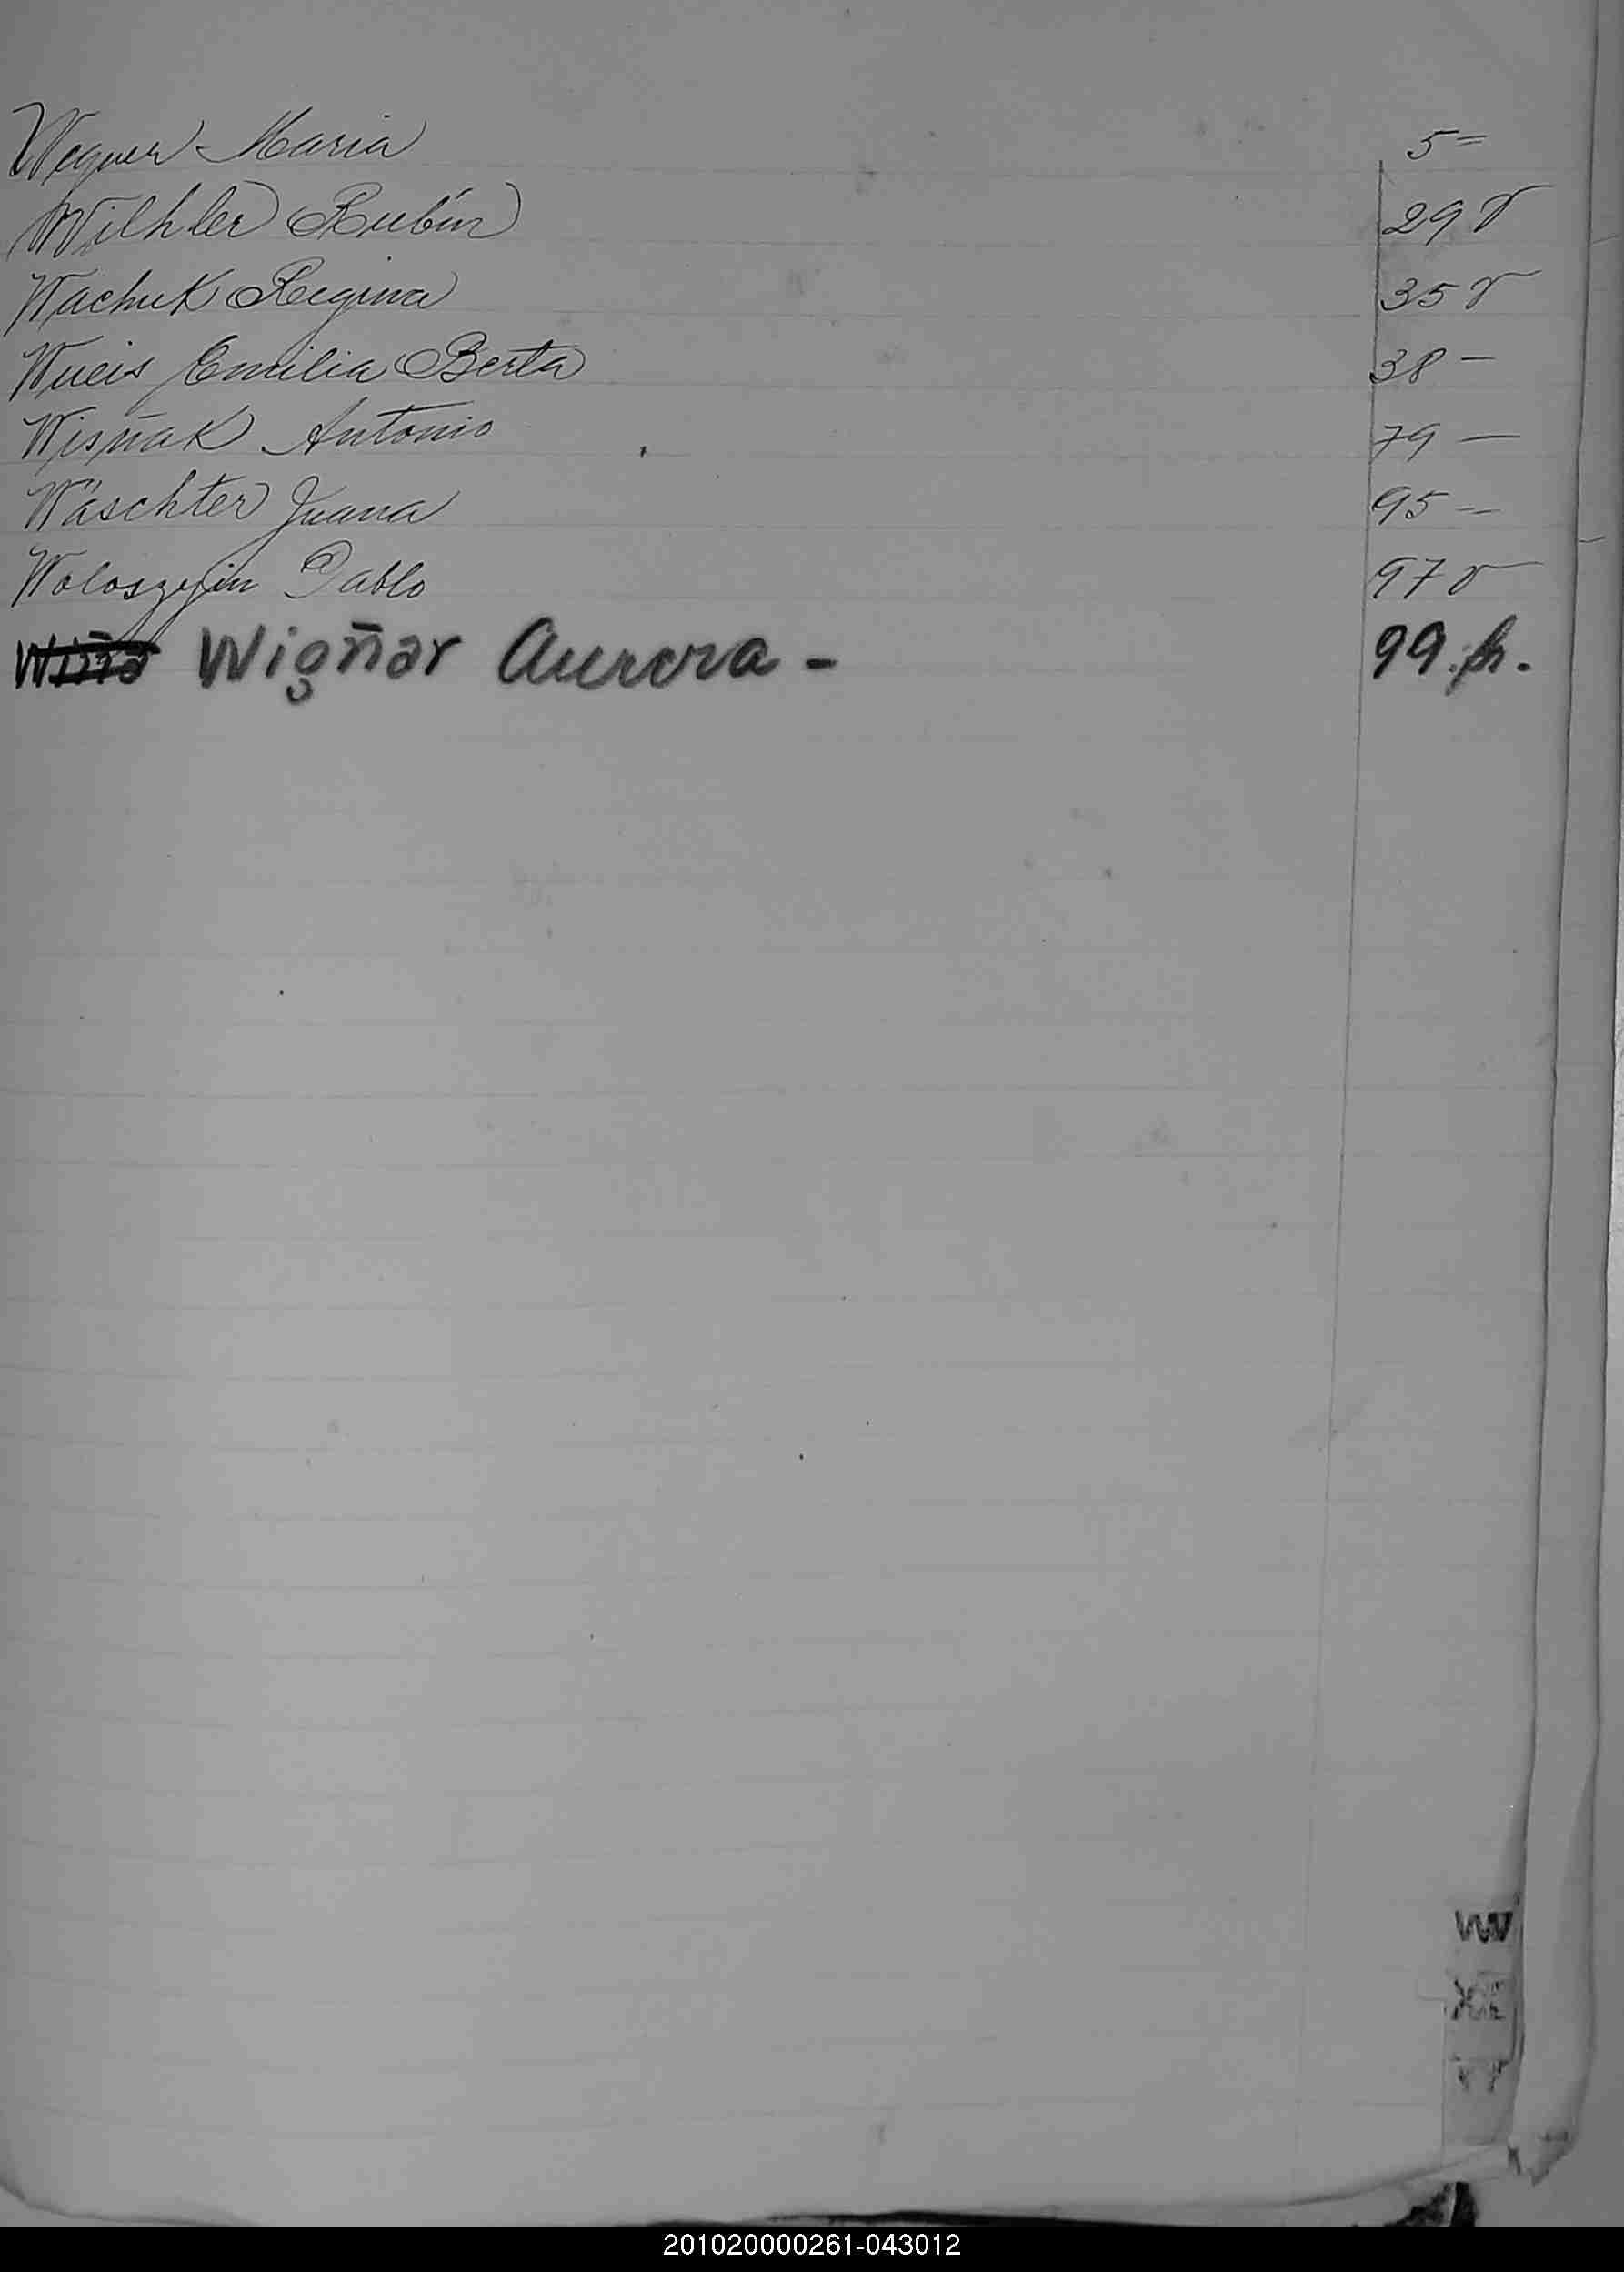 Wegner Maria 5 =
Wilhler Rubín 29 v
Wachuk Regina 35 v
Wueis Emilia Berta 38 -
Wisñak Antonio 79 -
Wäschter Juana 95 -
Woloszyjin Pablo 97 v
Wigñar Aurora - 99.
W
X
Y
201020000261-043012